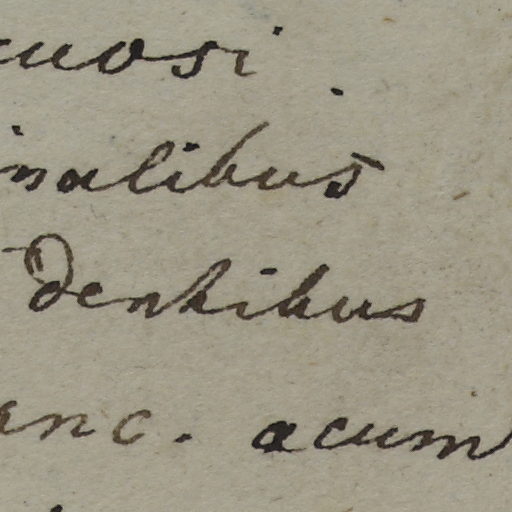 cuosi
inalibus
dentibus
anc. acum